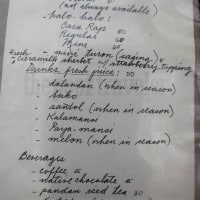 (not always available)
- halo-halo:
Casa Rap
Regular 60
Mini
fresh - mini turon (saging)
- Caramith sherbet w/ strawberry Topping
Drinks fresh juice: 50
- dalandan (when in season)
- buko
- santol (when in season)
- Kalamansi
- Paya-mansi
- melon (when in season)
Beverages
- coffee
- native chocolate
- pandan iced tea 50